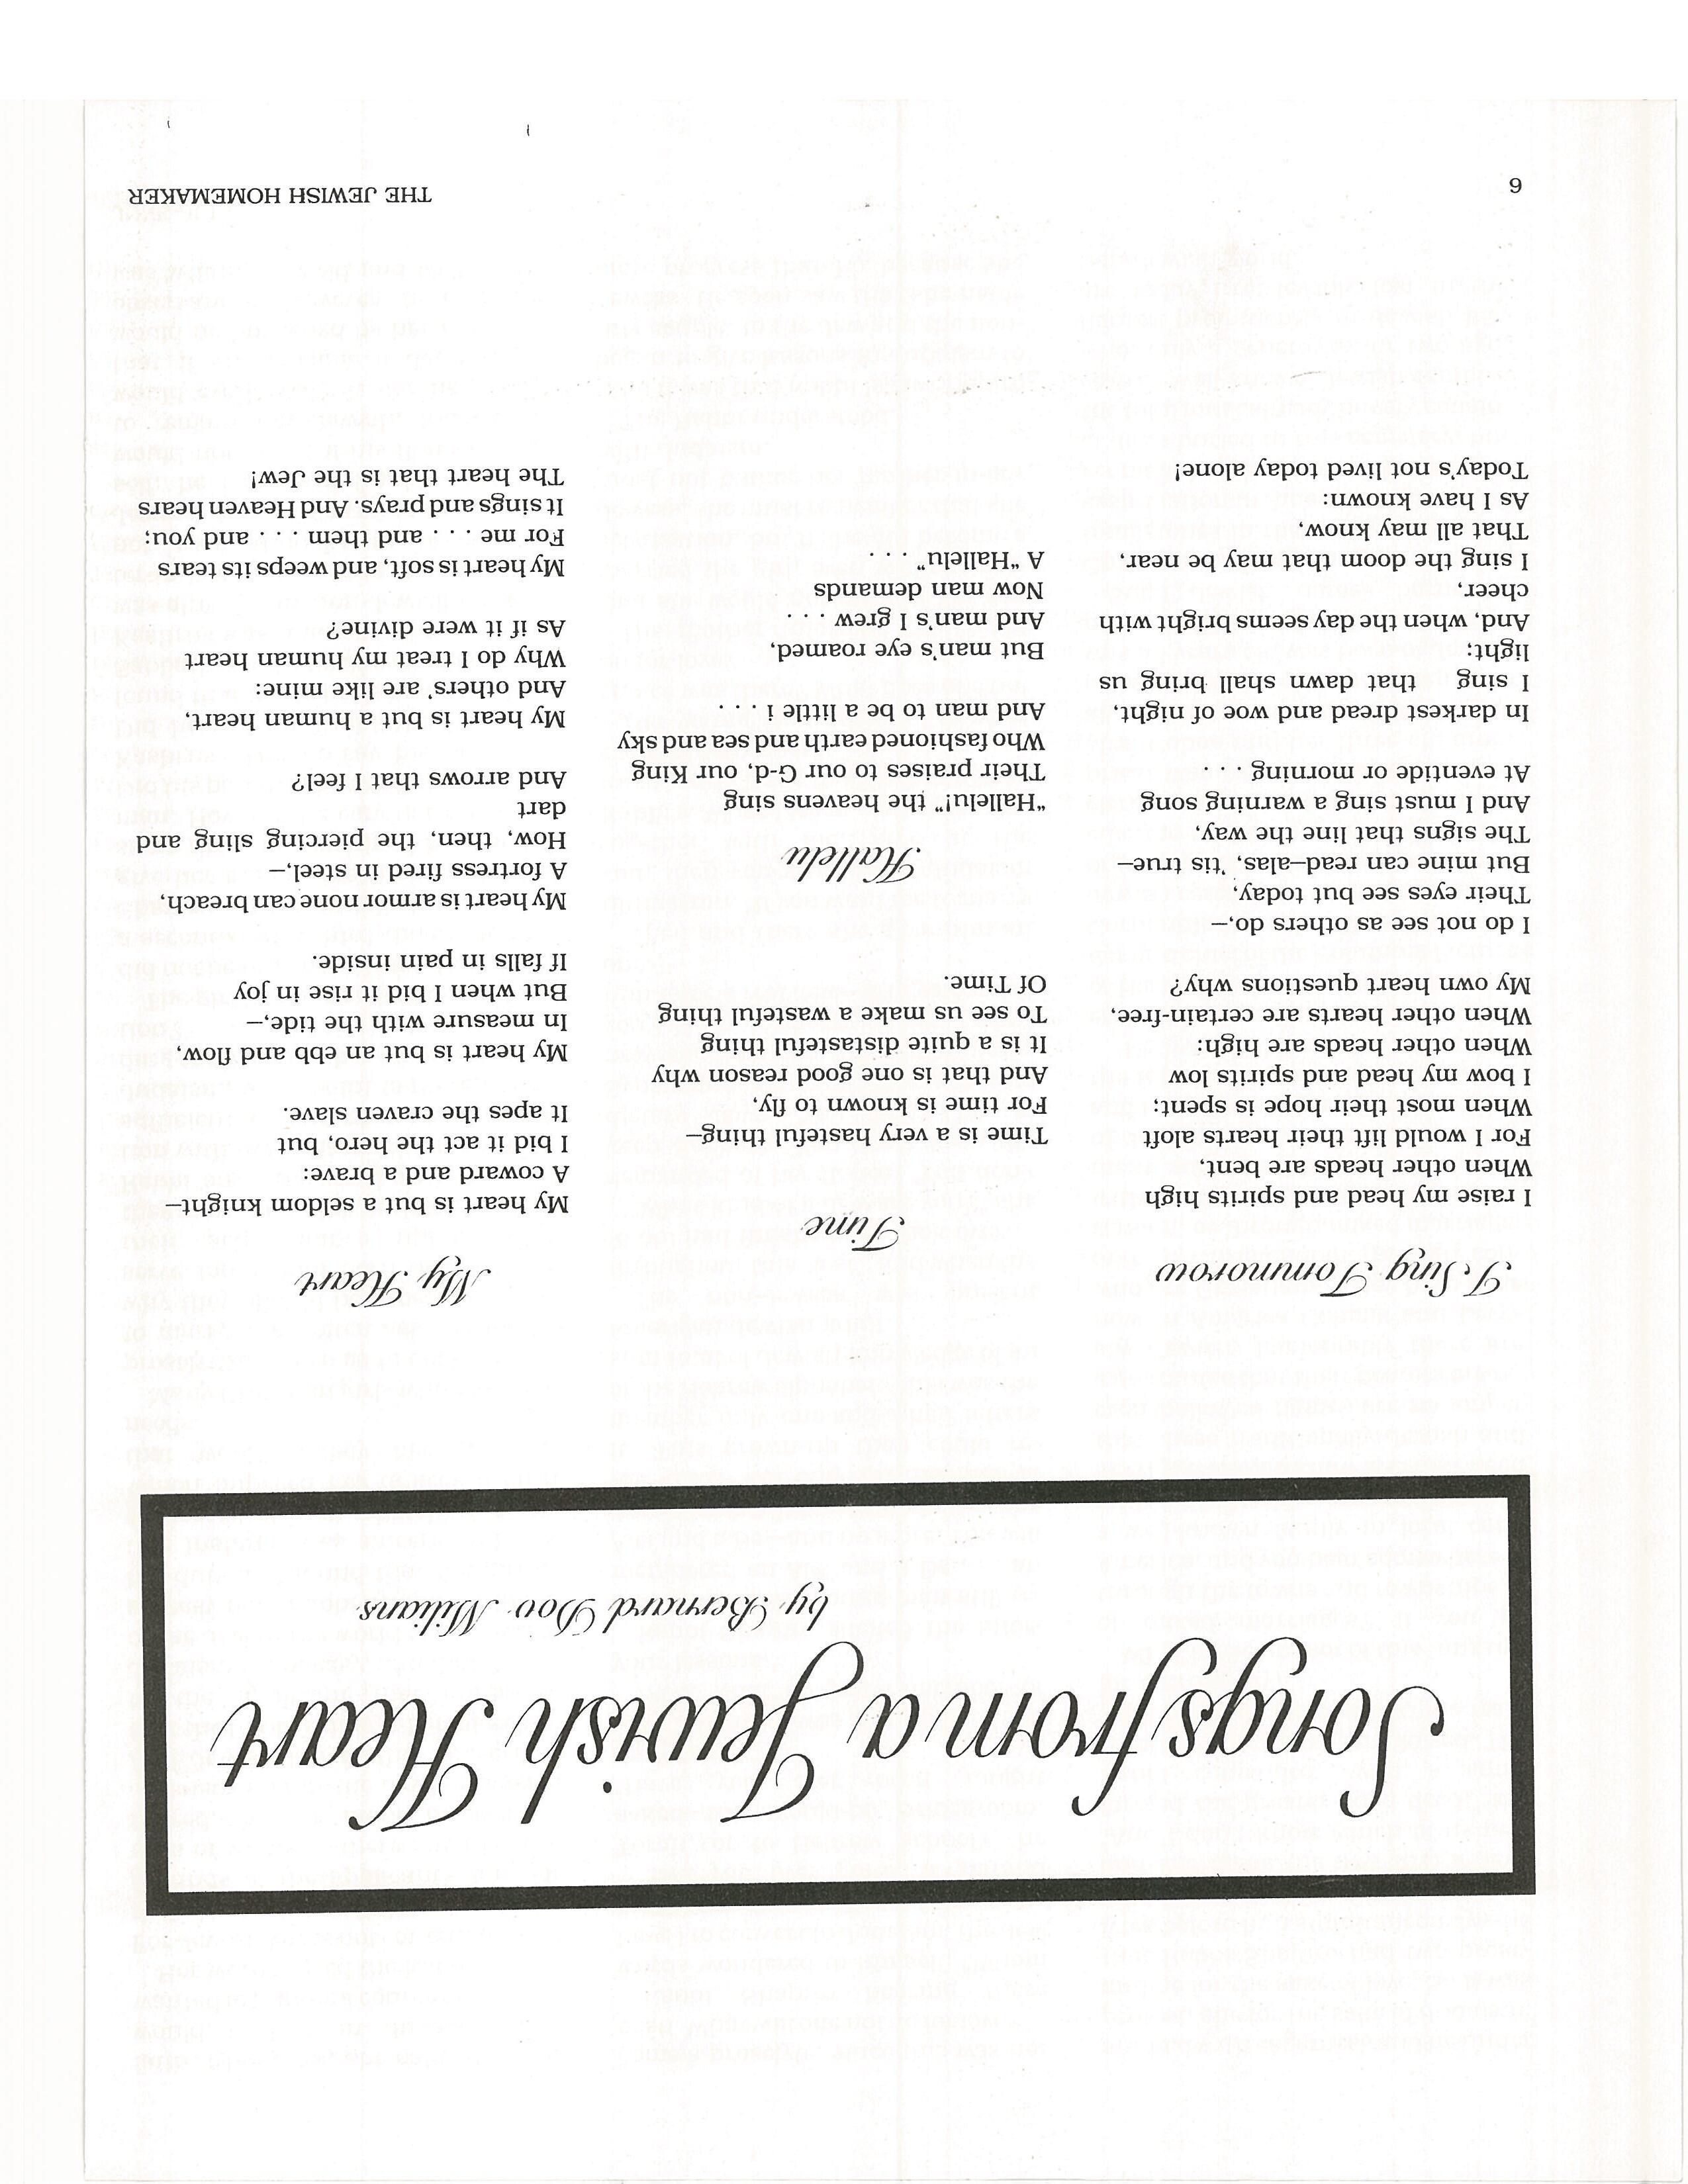 Songs from a Jewish Heart
by Bernard Dov Milians
I Sing Tommorow
I raise my head and spirits high
When other heads are bent,
For I would lift their hearts aloft
When most their hope is spent;
I bow my head and spirits low
When other heads are high:
When other hearts are certain-free,
My own heart questions why?
I do not see as others do,—
Their eyes see but today,
But mine can read—alas, 'tis true—
The signs that line the way,
And I must sing a warning song
At eventide or morning . . .
In darkest dread and woe of night,
I sing that dawn shall bring us
light;
And, when the day seems bright with
cheer,
I sing the doom that may be near,
That all may know,
As I have known:
Today's not lived today alone!
Time
Time is a very hasteful thing—
For time is known to fly,
And that is one good reason why
It is a quite distasteful thing
To see us make a wasteful thing
Of Time.
Hallelu
"Hallelu!" the heavens sing
Their praises to our G-d, our King
Who fashioned earth and sea and sky
And man to be a little i . . .
But man's eye roamed,
And man's I grew . . .
Now man demands
A "Hallelu" . . .
My Heart
My heart is but a seldom knight—
A coward and a brave:
I bid it act the hero, but
It apes the craven slave.
My heart is but an ebb and flow,
In measure with the tide,—
But when I bid it rise in joy
If falls in pain inside.
My heart is armor none can breach,
A fortress fired in steel,—
How, then, the piercing sling and
dart
And arrows that I feel?
My heart is but a human heart,
And others' are like mine:
Why do I treat my human heart
As if it were divine?
My heart is soft, and weeps its tears
For me . . . and them . . . and you;
It sings and prays. And Heaven hears
The heart that is the Jew!
6
THE JEWISH HOMEMAKER